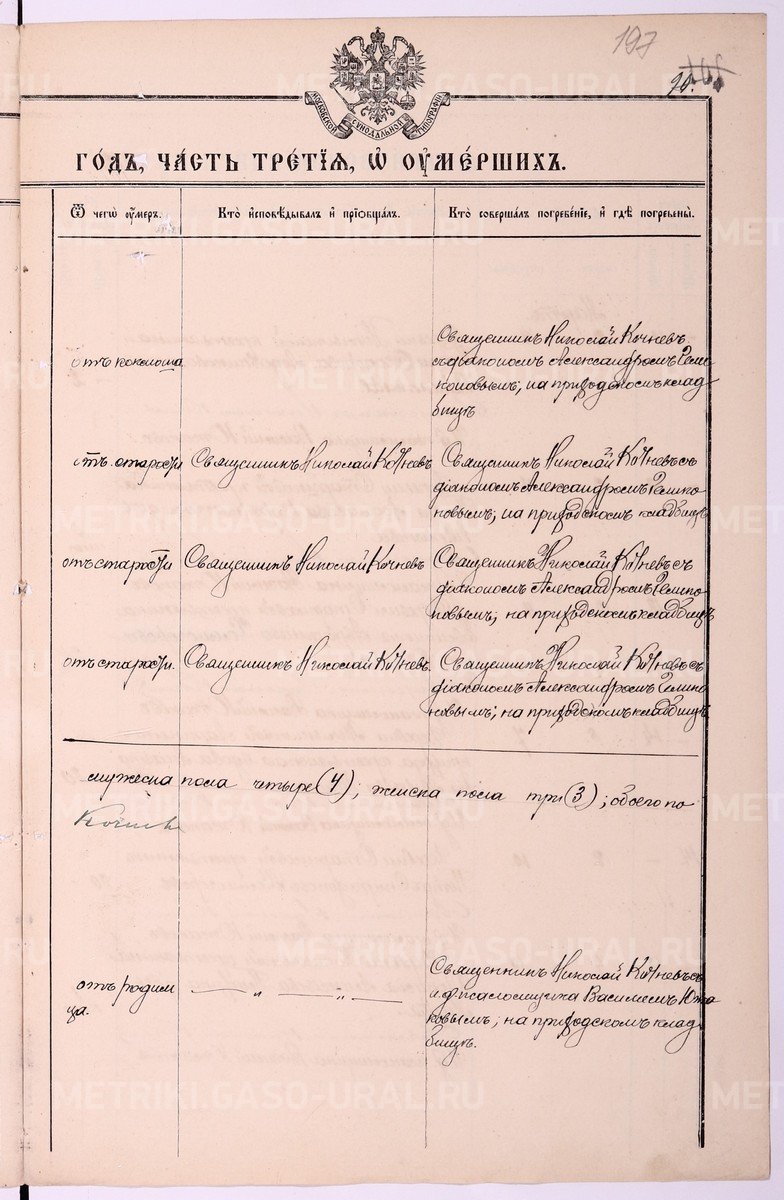 197
90.
МОСКОВСКОЙ СѴНОДАЛЬНОЙ ТИПОГРАФІИ
ГО́ДЪ, ЧА́СТЬ ТРЕ́ТІѦ, Ѡ҆ ОУ҆МЕ́РШИХЪ.
Ѿ чегѡ̀ оу҆́меръ.
Кто̀ и҆сповѣ́дывалъ и҆ прїѻбща́лъ.
Кто̀ соверша́лъ погребе́нїе, и҆ гдѣ̀ погребены̀.
отъ коклюша
Священникъ Николай Кочневъ
съ діакономъ Александромъ Геми-
коновымъ; на приходскомъ клад-
бищѣ
отъ старости
Священникъ Николай Кочневъ
Священникъ Николай Кочневъ съ
діакономъ Александромъ
новымъ; на приходскомъ кладбищѣ
отъ старости
Священникъ Николай Кочневъ
Священникъ Николай Кочневъ съ
діакономъ Александромъ
новымъ; на приходскомъ кладбищѣ
отъ старости.
Священникъ Николай Кочневъ.
Священникъ Николай Кочневъ съ
діакономъ Александромъ
новымъ; на приходскомъ кладбищѣ
мужеска пола четыре (4); женска пола три (3); обоего по
Кочневъ
отъ родим
ца.
— „ — „ —
Священникъ Николай Кочневъ съ
и.д. псаломщика Василіемъ Южа
ковымъ; на приходскомъ клад-
бищѣ.
METRIKI.GASO-URAL.RU